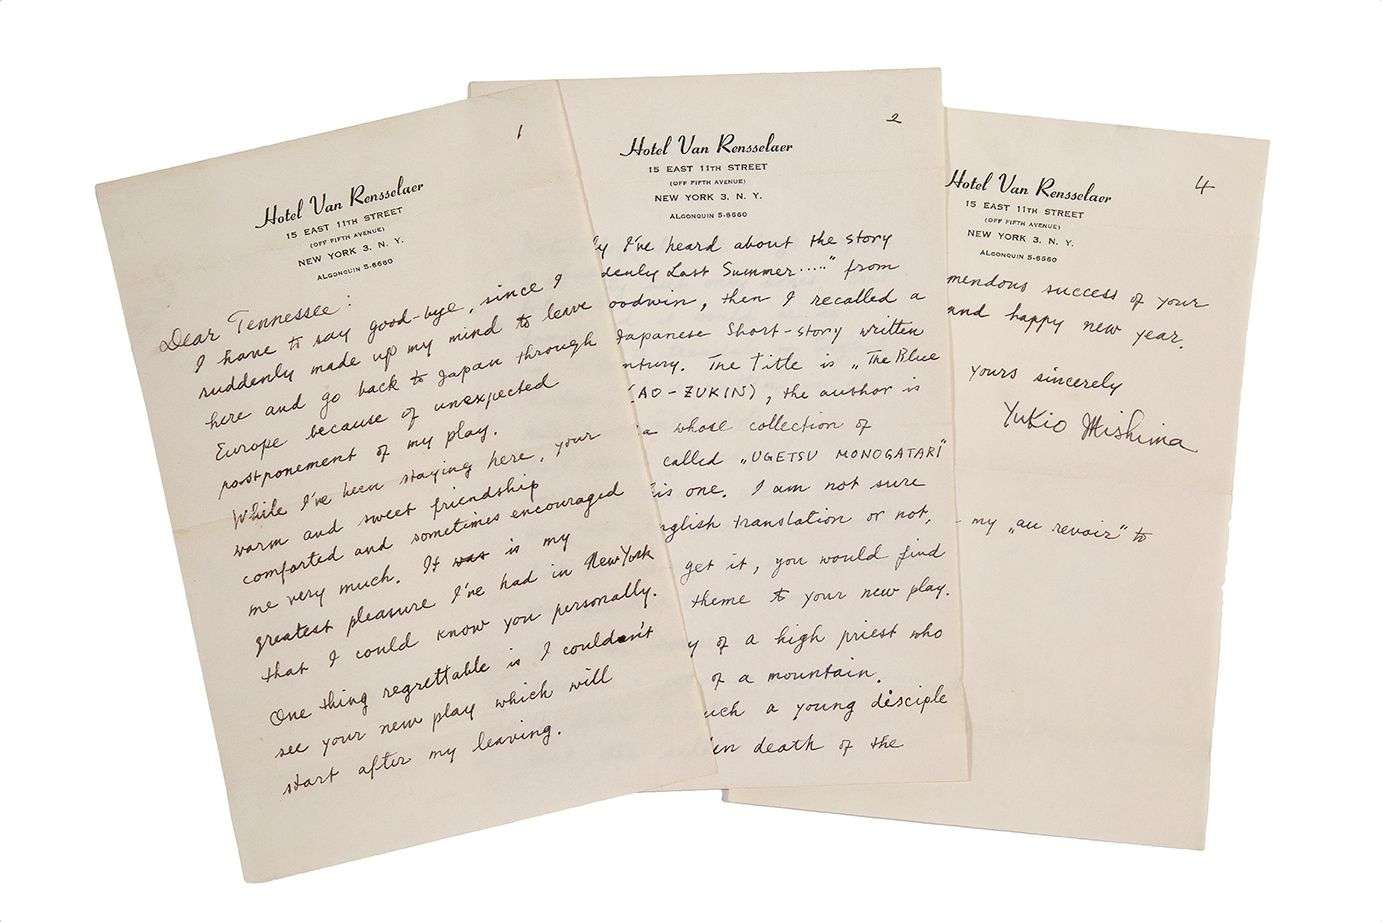 1
Hotel Van Rensselaer
15 EAST 11TH STREET
(OFF FIFTH AVENUE)
NEW YORK 3. N. Y.
ALGONQUIN 5-6660
Dear Tennessee:
I have to say good-bye, since I
suddenly made up my mind to leave
here and go back to Japan through
Europe because of unexpected
postponement of my play.
While I've been staying here, your
warm and sweet friendship
comforted and sometimes encouraged
me very much. It was is my
greatest pleasure I've had in New York
that I could know you personally.
One thing regrettable is I couldn't
see your new play which will
start after my leaving.
2
Hotel Van Rensselaer
15 EAST 11TH STREET
(OFF FIFTH AVENUE)
NEW YORK 3. N. Y.
ALGONQUIN 5-6660
ly I've heard about the story
denly Last Summer....." from
oodwin, then I recalled a
Japanese Short-story written
ntury. The Title is „The Blue
(AO-ZUKIN), the author is
a whose collection of
called „UGETSU MONOGATARI"
is one. I am not sure
nglish translation or not,
get it, you would find
theme to your new play.
y of a high priest who
of a mountain.
uch a young disciple
en death of the
4
Hotel Van Rensselaer
15 EAST 11TH STREET
(OFF FIFTH AVENUE)
NEW YORK 3. N. Y.
ALGONQUIN 5-6660
mendous success of your
and happy new year.
yours sincerely
Yukio Mishima
my „au revoir" to